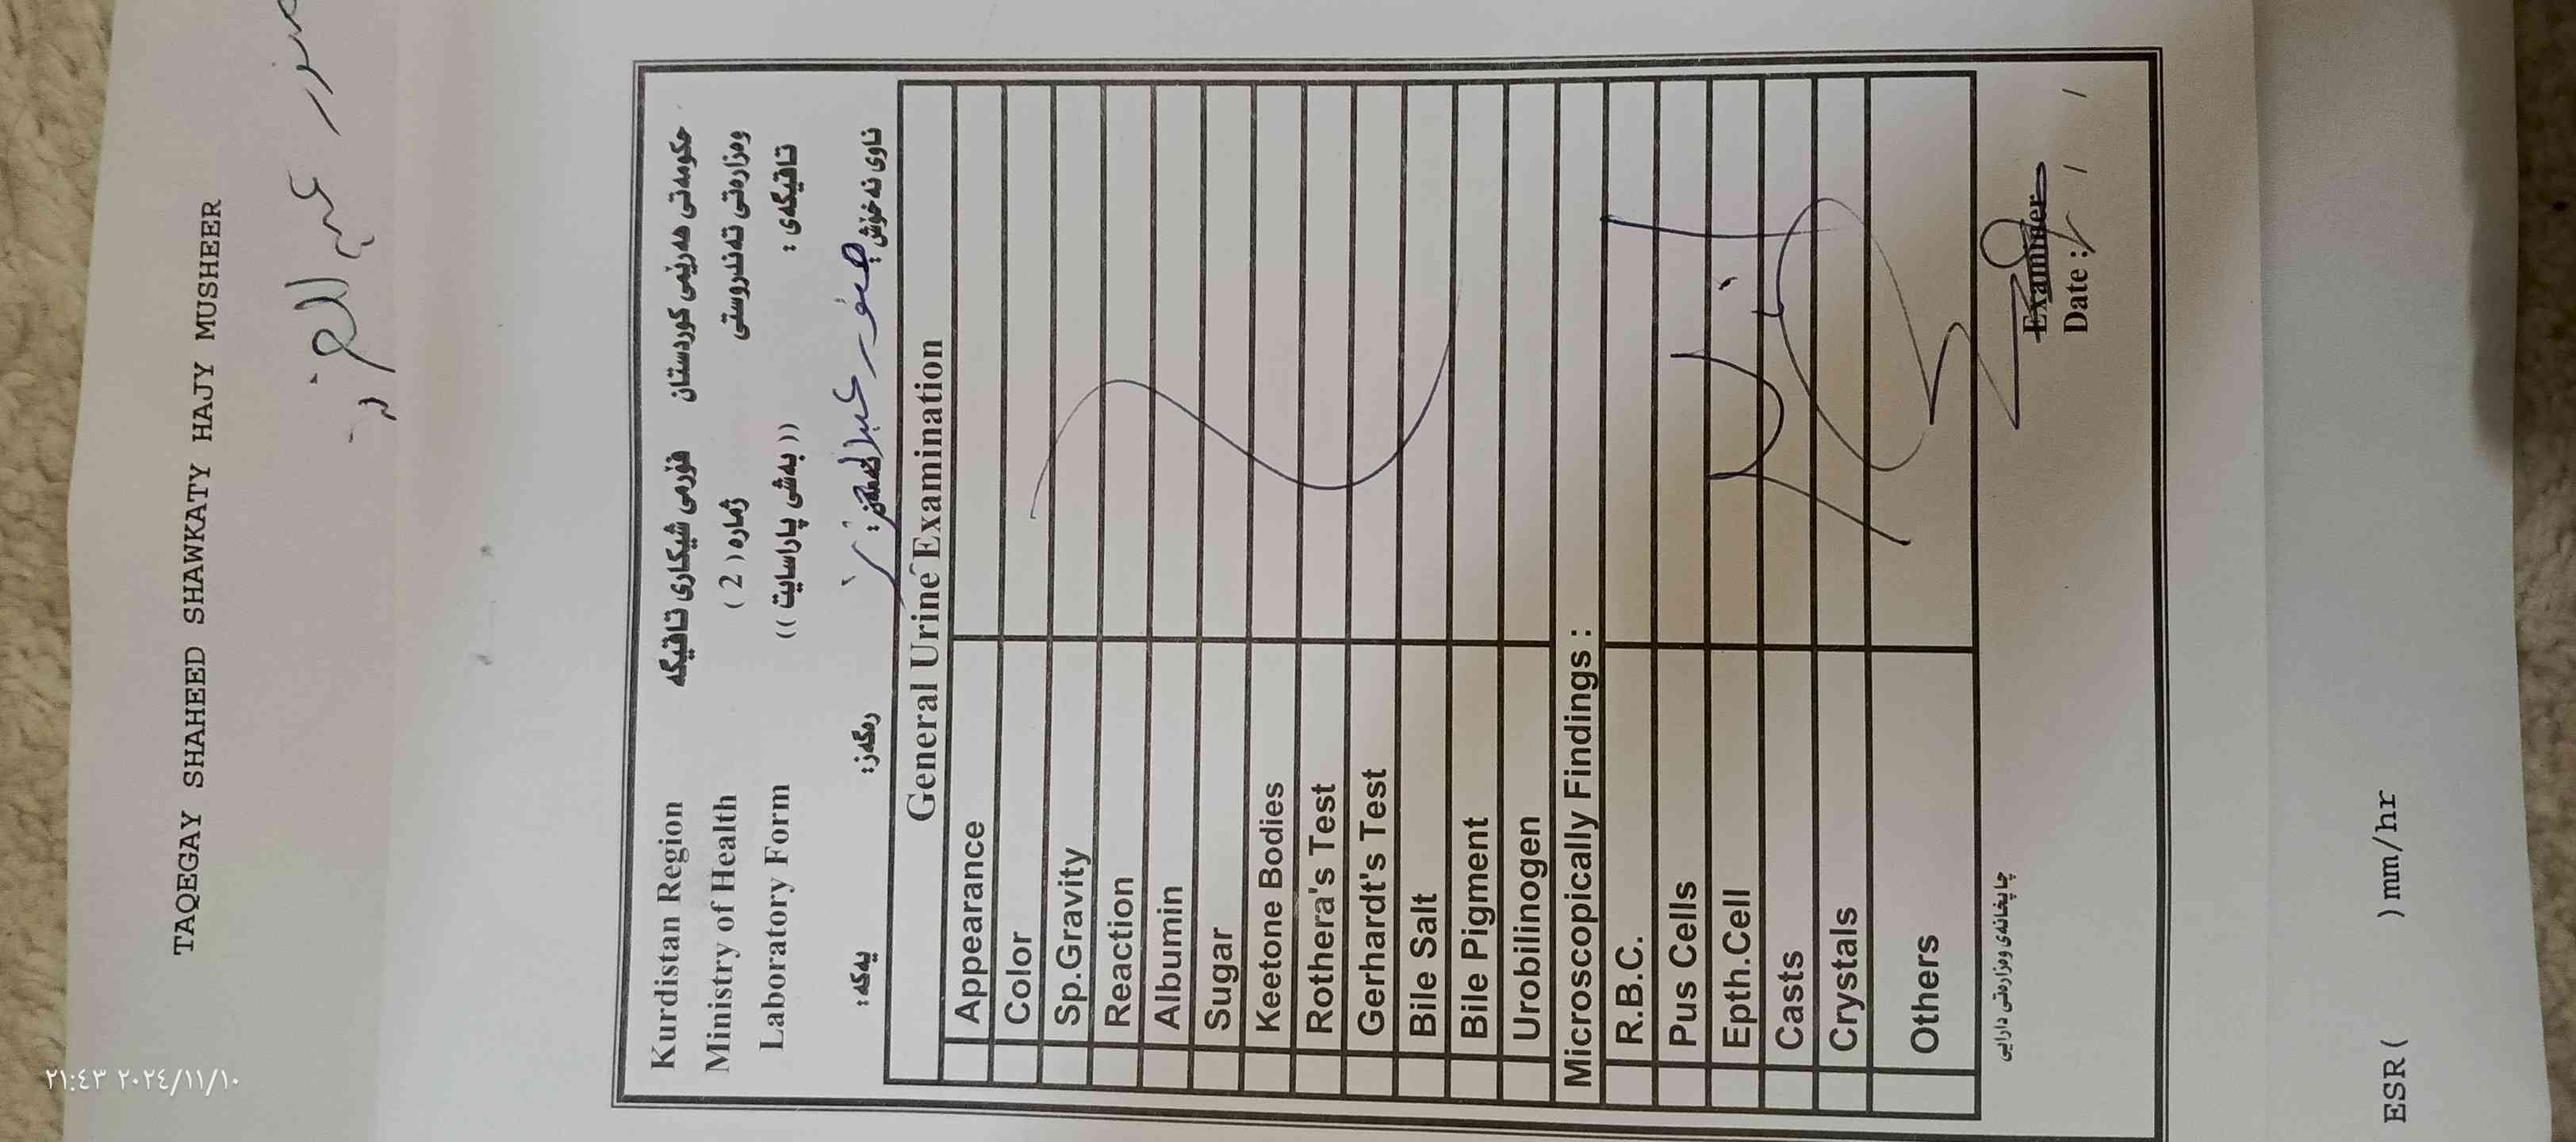 TAQEGAY SHAHEED SHAWKATY HAJY MUSHEER
Kurdistan Region
فۆرمی شیکاری تاقیگە
حکومەتی هەرێمی کوردستان
Ministry of Health
ژمارە ( 2 )
وەزارەتی تەندروستی
Laboratory Form
(( بەشی پاراسایت ))
تاقیگەی :
ناوی نەخۆش:
تەمەن:
رەگەز:
یەکە:
General Urine Examination
Appearance
Color
Sp.Gravity
Reaction
Albumin
Sugar
Keetone Bodies
Rothera's Test
Gerhardt's Test
Bile Salt
Bile Pigment
Urobilinogen
Microscopically Findings :
R.B.C.
Pus Cells
Epth.Cell
Casts
Crystals
Others
چاپخانەی وەزارەتی دارایی
Examiner
Date : / /
ESR( ) mm/hr
٢٠٢٤/١١/١٠ ٢١:٤٣